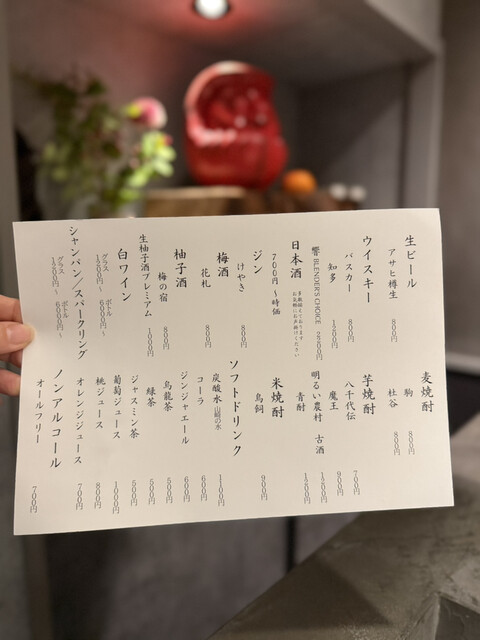 生ビール
アサヒ樽生 800円
ウイスキー
バスカー 800円
知多 1200円
響 BLENDER'S CHOICE 2800円
日本酒
700円〜時価
多数揃えております
お気軽にお声掛けください
ジン
けやき 800円
梅酒
花札 800円
柚子酒
梅の宿 800円
生柚子酒プレミアム 1000円
白ワイン
グラス 1200円〜
ボトル 6000円〜
シャンパン／スパークリング
グラス 1200円〜
ボトル 6000円〜
麦焼酎
駒 800円
杜谷 800円
芋焼酎
八千代伝 700円
魔王 900円
明るい農村 古酒 1200円
青酎 1200円
米焼酎
鳥飼 900円
ソフトドリンク
炭酸水 山崎の水 1100円
コーラ 600円
ジンジャエール 600円
烏龍茶 500円
緑茶 500円
ジャスミン茶 500円
葡萄ジュース 1000円
桃ジュース 800円
オレンジジュース 700円
ノンアルコール
オールフリー 700円